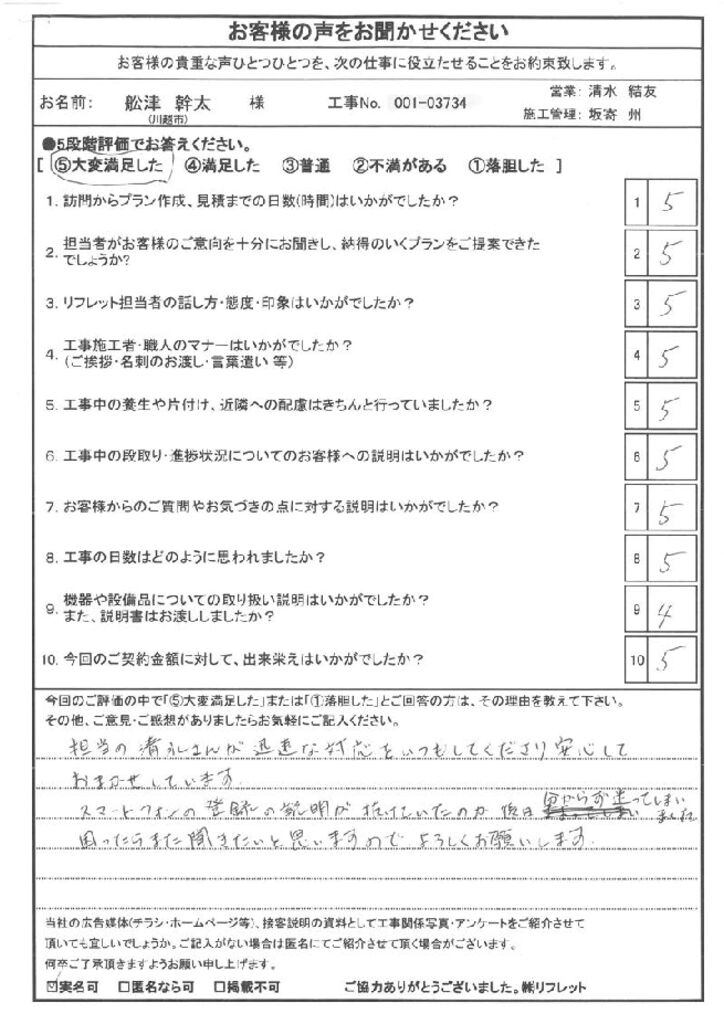 お客様の声をお聞かせください
お客様の貴重な声ひとつひとつを、次の仕事に役立たせることをお約束致します。
お名前: 舩津 幹太 様 工事No. 001-03734 営業: 清水 結友
(川越市) 施工管理: 坂寄 州
●5段階評価でお答えください。
[ ⑤大変満足した ④満足した ③普通 ②不満がある ①落胆した ]
1. 訪問からプラン作成、見積までの日数(時間)はいかがでしたか? 1 5
2. 担当者がお客様のご意向を十分にお聞きし、納得のいくプランをご提案できた
でしょうか? 2 5
3. リフレット担当者の話し方・態度・印象はいかがでしたか? 3 5
4. 工事施工者・職人のマナーはいかがでしたか?
(ご挨拶・名刺のお渡し・言葉遣い 等) 4 5
5. 工事中の養生や片付け、近隣への配慮はきちんと行っていましたか? 5 5
6. 工事中の段取り・進捗状況についてのお客様への説明はいかがでしたか? 6 5
7. お客様からのご質問やお気づきの点に対する説明はいかがでしたか? 7 5
8. 工事の日数はどのように思われましたか? 8 5
9. 機器や設備品についての取り扱い説明はいかがでしたか?
また、説明書はお渡ししましたか? 9 4
10. 今回のご契約金額に対して、出来栄えはいかがでしたか? 10 5
今回のご評価の中で「⑤大変満足した」または「①落胆した」とご回答の方は、その理由を教えて下さい。
その他、ご意見・ご感想がありましたらお気軽にご記入ください。
担当の清水さんが迅速な対応をいつもしてくださり安心して
おまかせしています。
スマートフォンの登録の説明が抜けていたのか後日 分からず困ってしまい
ました
困ったらまた聞きたいと思いますので よろしくお願いします.
当社の広告媒体(チラシ・ホームページ等)、接客説明の資料として工事関係写真・アンケートをご紹介させて
頂いても宜しいでしょうか。ご記入がない場合は匿名にてご紹介させて頂く場合がございます。
何卒ご了承頂きますようお願い申し上げます。
☑実名可 □匿名なら可 □掲載不可 ご協力ありがとうございました。㈱リフレット